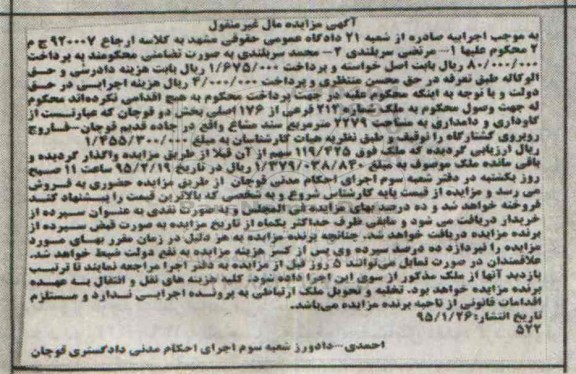 آگهی مزایده مال غیرمنقول
به موجب اجراییه صادره از شعبه ۲۱ دادگاه عمومی حقوقی مشهد به کلاسه ارجاع ۹۲۰۰۰۷ ج م
۲ محکوم علیها ۱- مرتضی سربلندی ۲- محمد سربلندی به صورت تضامنی محکومند به پرداخت
۸۰/۰۰۰/۰۰۰ ریال بابت اصل خواسته و پرداخت ۱/۶۷۵/۰۰۰ ریال بابت هزینه دادرسی و حق
الوکاله طبق تعرفه در حق محسن منتظری و پرداخت ۴/۰۰۰/۰۰۰ ریال هزینه اجرایی در حق
دولت و با توجه به اینکه محکوم علیه در جهت پرداخت محکوم به هیچ اقدامی نکرده‌اند محکوم
له جهت وصول محکوم به ملک شماره ۲۱۳ فرعی از ۱۷۶ اصلی بخش دو قوچان که عبارتست از
گاوداری و دامداری به مساحت ۲۲۷۹ مترمربع سند مشاع واقع در جاده قدیم قوچان-فاروج
روبروی کشتارگاه را توقیف و طبق نظریه هیات کارشناسان به مبلغ ۱/۴۵۵/۳۰۰/۰۰۰
ریال ارزیابی گردیده که ملک فوق ۱۱۹/۴۲۵ سهم از آن قبلا از طریق مزایده واگذار گردیده و
باقی مانده ملک موصوف به مبلغ ۱/۳۷۹/۰۳۸/۸۳۰ ریال در تاریخ ۹۵/۲/۱۹ ساعت ۱۱ صبح
روز یکشنبه در دفتر شعبه سوم اجرای احکام مدنی قوچان از طریق مزایده حضوری به فروش
می رسد و مزایده از قیمت پایه کارشناس شروع و به شخصی که بالاترین قیمت را پیشنهاد کند
فروخته خواهد شد و ده درصد بهای مزایده فی المجلس و به صورت نقدی به عنوان سپرده از
خریدار دریافت می شود و مابقی ظرف حداکثر یکماه از تاریخ مزایده به صورت قبض سپرده از
برنده مزایده دریافت خواهد شد. چنانچه برنده مزایده به هر دلیل در زمان مقرر بهای مورد
مزایده را نپردازد ده درصد سپرده وی پس از کسر هزینه مزایده به نفع دولت ضبط خواهد شد.
علاقمندان در صورت تمایل می‌توانند ۵ روز قبل از مزایده به دفتر اجرا مراجعه نمایند تا ترتیب
بازدید آنها از ملک مذکور از سوی این اجرا داده شود. کلیه هزینه های نقل و انتقال به عهده
برنده مزایده خواهد بود. تخلیه و تحویل ملک ارتباطی به پرونده اجرایی ندارد و مستلزم
اقدامات قانونی از ناحیه برنده مزایده می‌باشد.
تاریخ انتشار: ۹۵/۱/۲۶
۵۲۲
احمدی-دادورز شعبه سوم اجرای احکام مدنی دادگستری قوچان